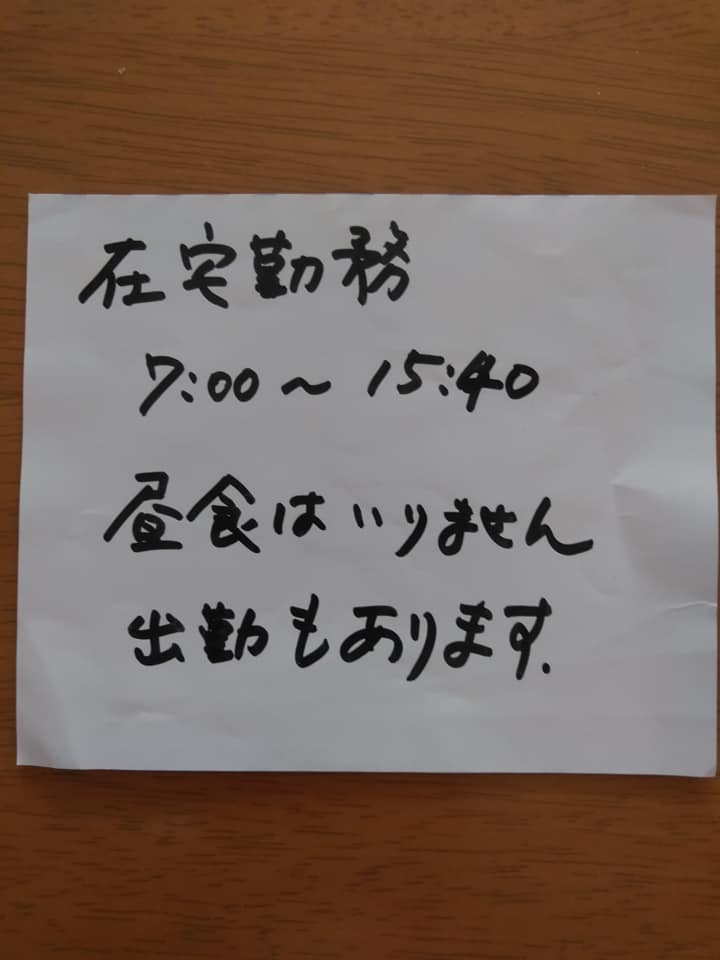 在宅勤務
7:00～15:40
昼食はいりません
出勤もあります.